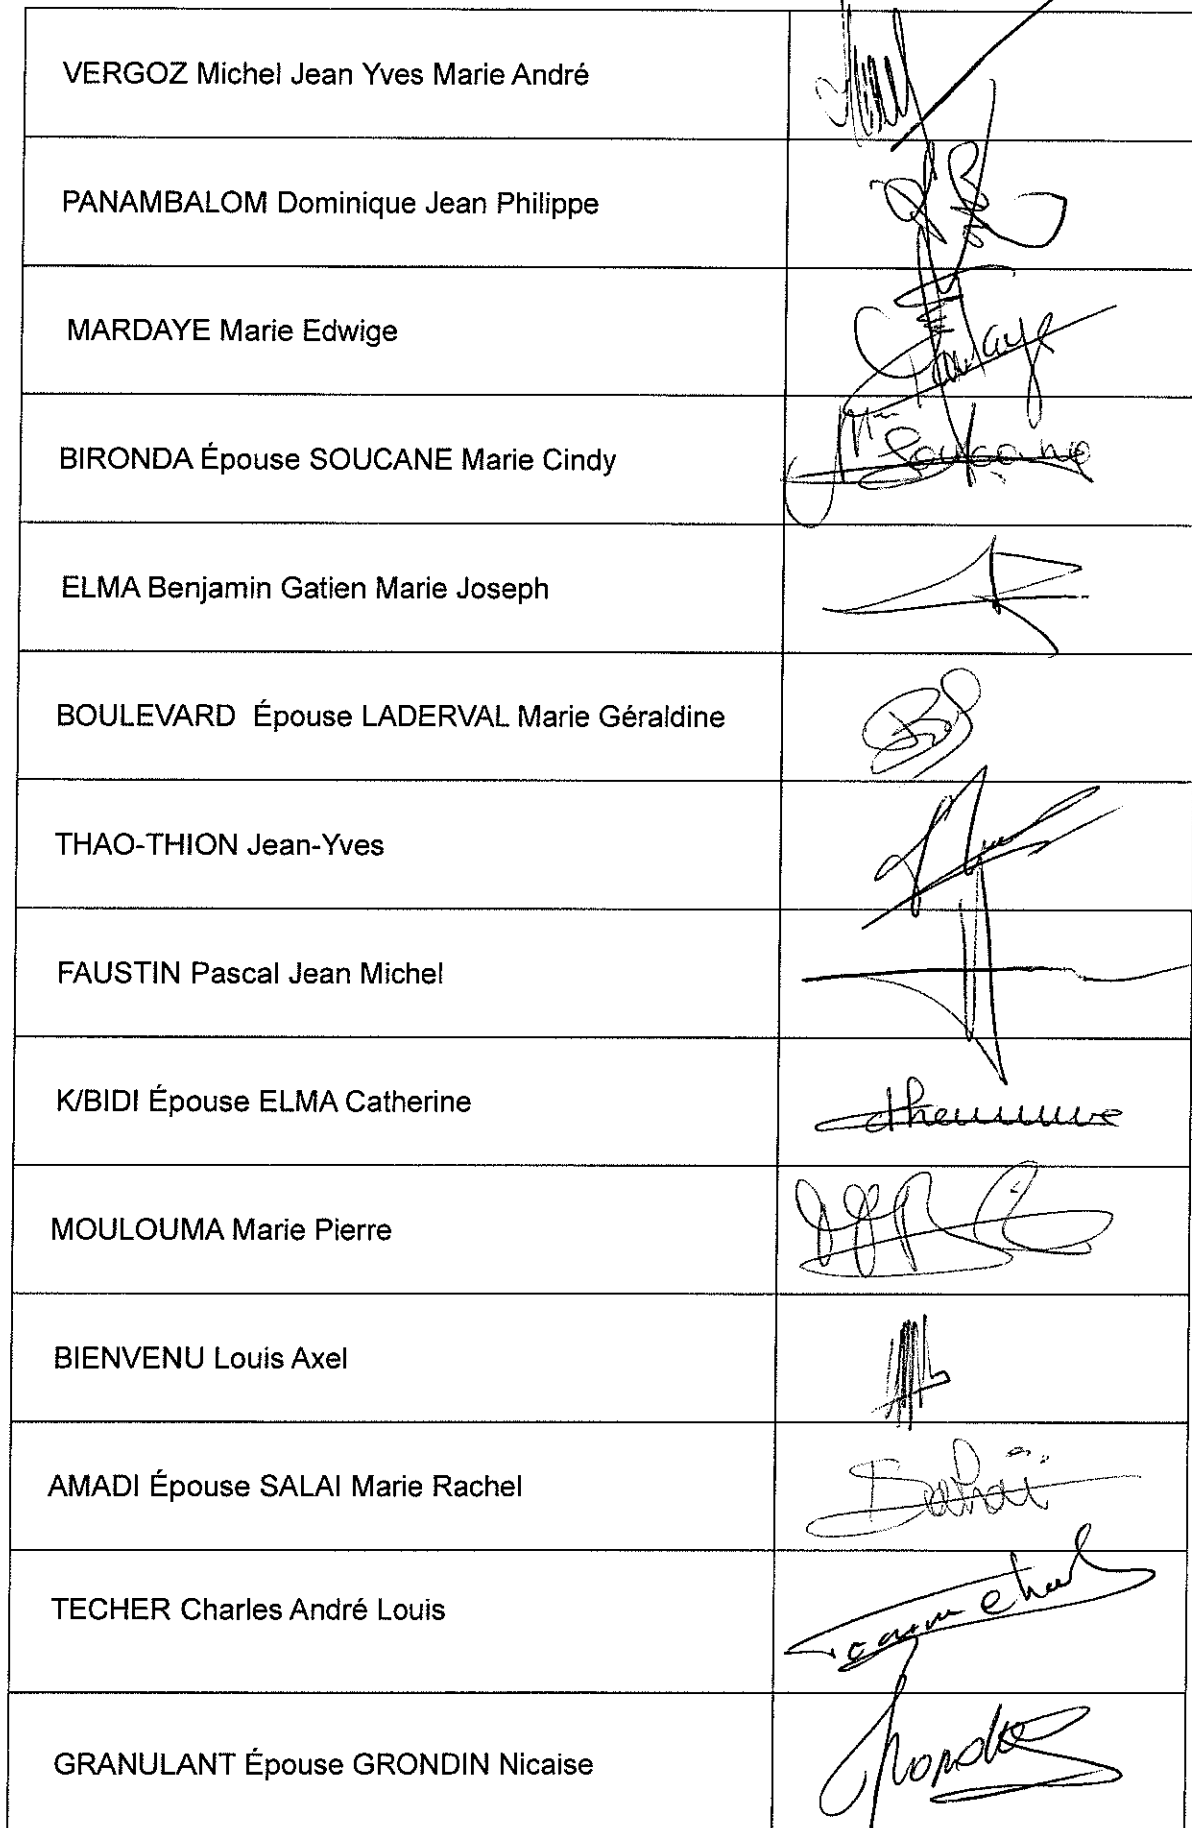 VERGOZ Michel Jean Yves Marie André
PANAMBALOM Dominique Jean Philippe
MARDAYE Marie Edwige
BIRONDA Épouse SOUCANE Marie Cindy
ELMA Benjamin Gatien Marie Joseph
BOULEVARD Épouse LADERVAL Marie Géraldine
THAO-THION Jean-Yves
FAUSTIN Pascal Jean Michel
K/BIDI Épouse ELMA Catherine
MOULOUMA Marie Pierre
BIENVENU Louis Axel
AMADI Épouse SALAI Marie Rachel
TECHER Charles André Louis
GRANULANT Épouse GRONDIN Nicaise